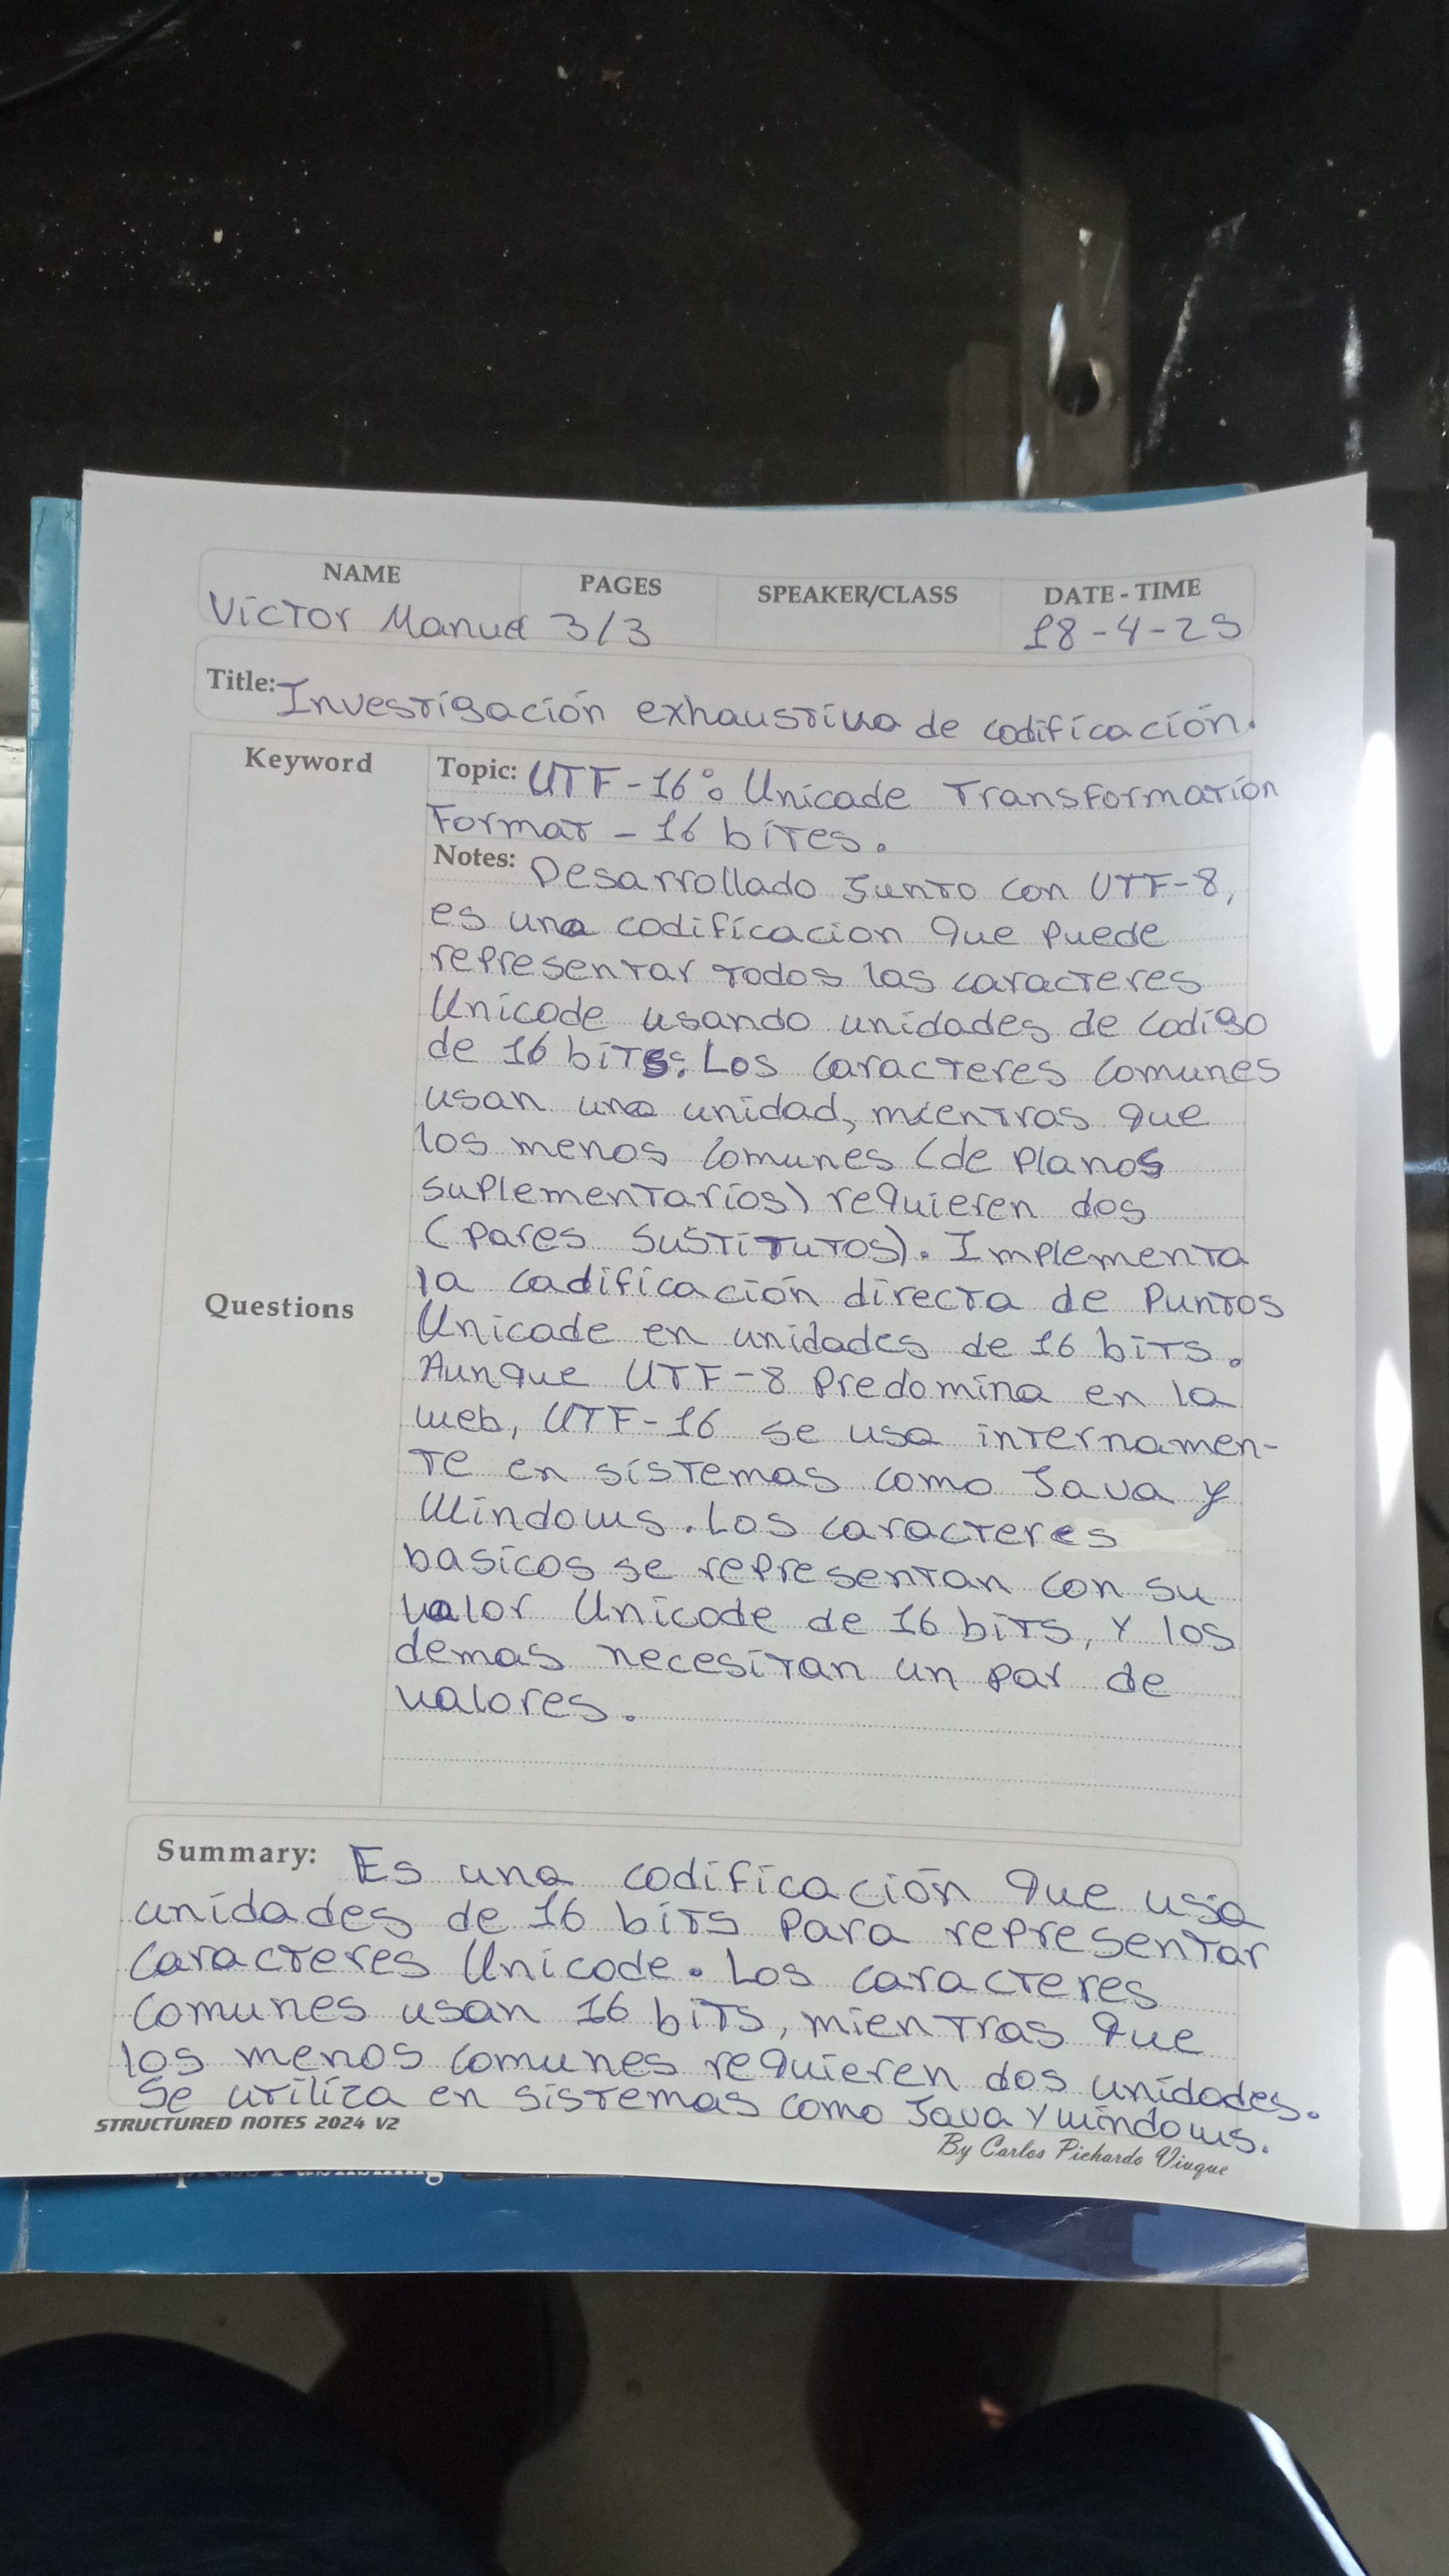 NAME PAGES SPEAKER/CLASS DATE - TIME
Víctor Manuel 3/3 18-4-25
Title: Investigación exhaustiva de codificación.
Keyword
Topic: UTF-16: Unicode Transformation
Format - 16 bites.
Notes: Desarrollado Junto con UTF-8,
es una codificacion que puede
representar todos los caracteres
Unicode usando unidades de codigo
de 16 bits. Los caracteres comunes
usan una unidad, mientras que
los menos comunes (de planos
suplementarios) requieren dos
(pares sustitutos). Implementa
la codificación directa de puntos
Questions
Unicode en unidades de 16 bits.
Aunque UTF-8 predomina en la
web, UTF-16 se usa internamen-
te en sistemas como Java y
Windows. Los caracteres
basicos se representan con su
valor Unicode de 16 bits, y los
demas necesitan un par de
valores.
Summary: Es una codificación que usa
unidades de 16 bits para representar
caracteres Unicode. Los caracteres
comunes usan 16 bits, mientras que
los menos comunes requieren dos unidades.
Se utiliza en sistemas como Java y windows.
STRUCTURED NOTES 2024 V2
By Carlos Pichardo Viuque